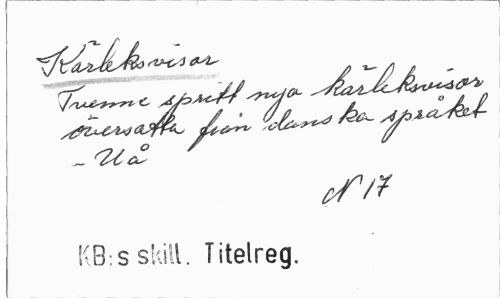 Kärleksvisor
Tvenne spritt nya kärleksvisor
översatta från danska språket
- Uå
N 17
KB:s skill. Titelreg.